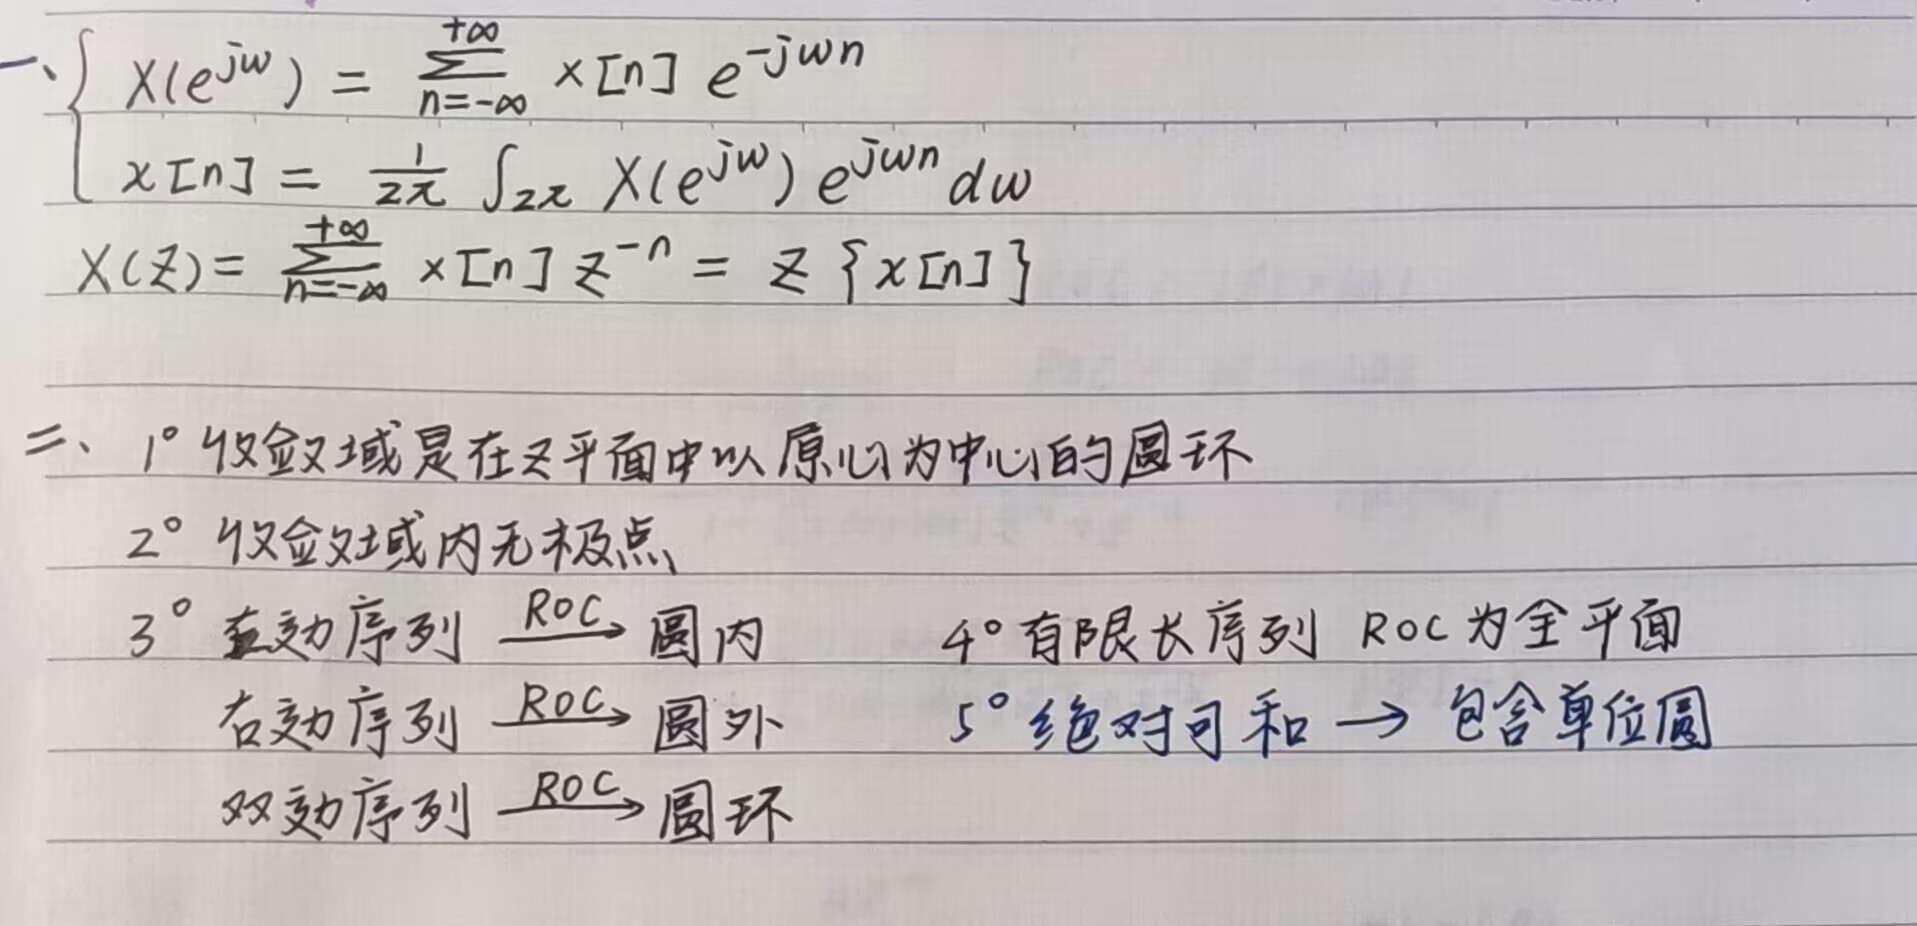 一、{ X(e^{jω}) = \sum_{n=-∞}^{+∞} x[n] e^{-jωn}
x[n] = \frac{1}{2π} ∫_{2π} X(e^{jω}) e^{jωn} dω
X(Z) = \sum_{n=-∞}^{+∞} x[n] z^{-n} = Z {x[n]}
二、1° 收敛域是在Z平面中以原心为中心的圆环
2° 收敛域内无极点
3° 左边序列 \xrightarrow{ROC} 圆内
右边序列 \xrightarrow{ROC} 圆外
双边序列 \xrightarrow{ROC} 圆环
4° 有限长序列 ROC为全平面
5° 绝对可和 → 包含单位圆